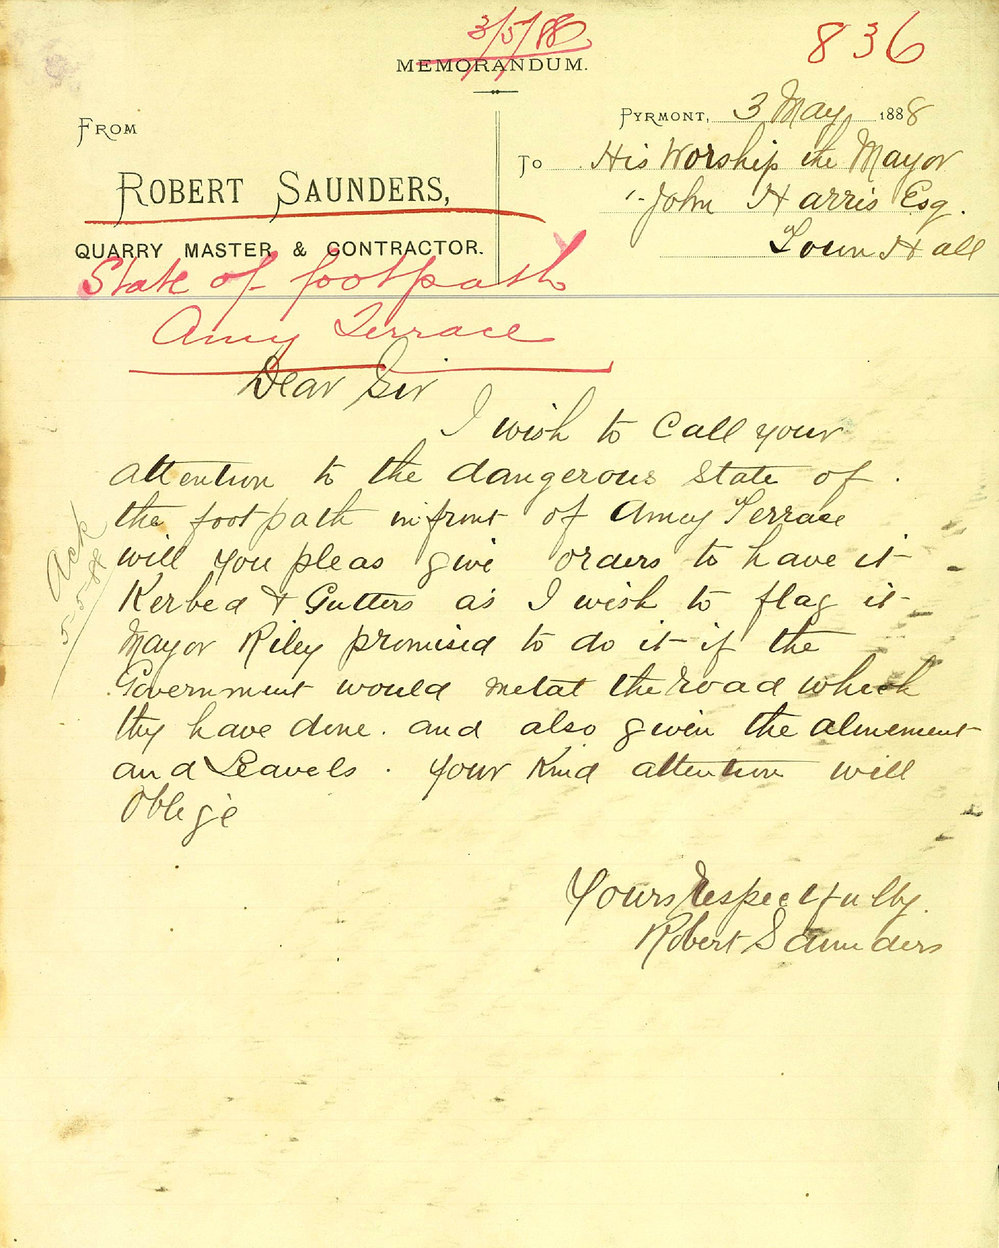 3/5/88
836
MEMORANDUM.
PYRMONT, 3 May 1888
FROM
ROBERT SAUNDERS,
QUARRY MASTER & CONTRACTOR.
To His Worship the Mayor
John Harris Esq.
Town Hall
State of footpath
Amy Terrace
Dear Sir
I wish to Call your
attention to the dangerous state of
the foot path infront of Amy Terrace
will you pleas give orders to have it
Kerbed & Gutters as I wish to flag it
Mayor Riley promised to do it if the
Government would metal the road which
thy have done. and also given the alinement
and Leavels. Your Kind attention will
Oblege
Ack
5-5-88
Yours respectfully.
Robert Saunders